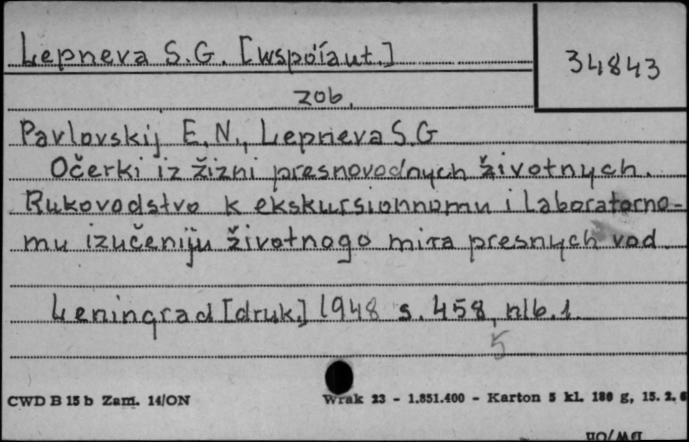 Lepneva S.G. [współaut.]
34843
zob.
Pavlovskij E.N., Lepneva S.G
Očerki iz žizni presnovodnych životnych.
Rukovodstvo k ekskursionnomu i laboratorno-
mu izučeniju životnogo mira presnych vod.
Leningrad [druk.] 1948 s. 458, nlb. 1
5
CWD B 15 b Zam. 14/ON
Wrak 23 - 1.851.400 - Karton 5 kl. 180 g, 15. 2. 6